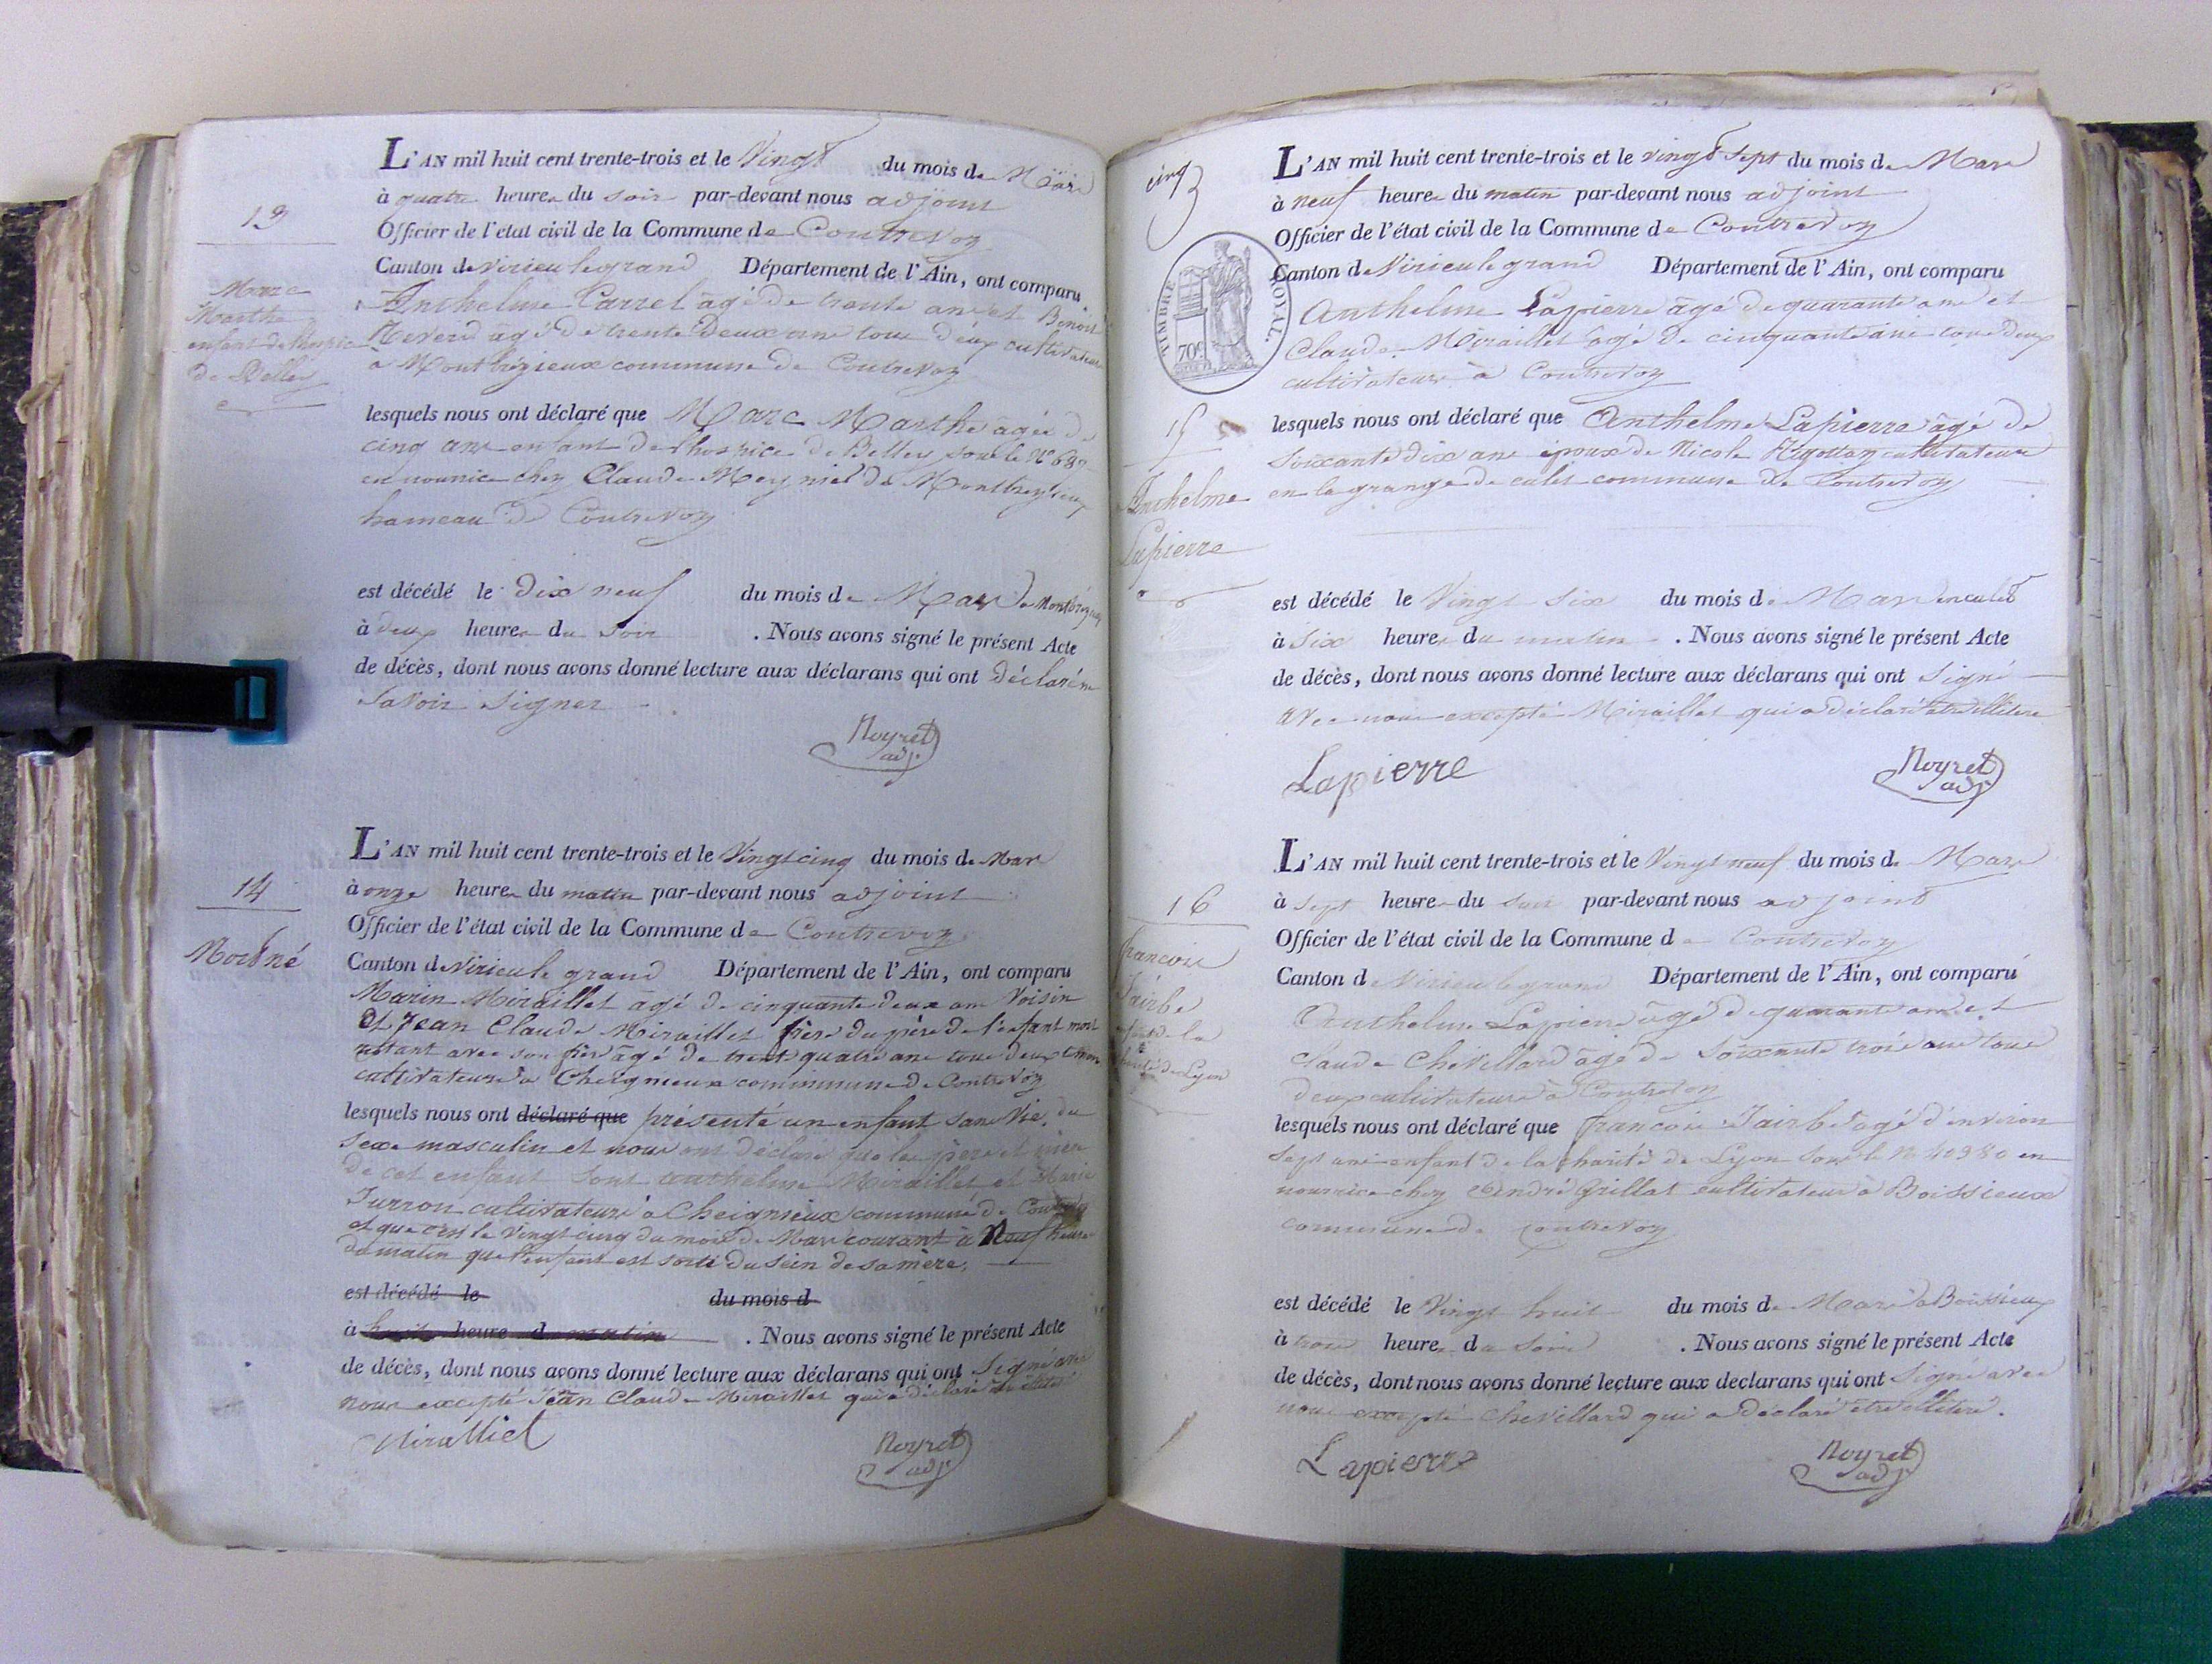 13
Marc
Marthe
enfant de l'hospice
de Belley
L'AN mil huit cent trente-trois et le Vingt du mois de Mars
à quatre heures du soir par-devant nous adjoint
Officier de l'état civil de la Commune de Contrevoz
Canton de Virieu le grand Département de l'Ain, ont comparu
Anthelme Carrel âgé de trente ans et Benoit
âgé de trente deux ans tous deux cultivateurs
à Montbrézieux commune de Contrevoz
lesquels nous ont déclaré que Marc Marthe âgée de
cinq ans enfant de l'hospice de Belley sous le N°
en nourrice chez Claude Meyniel de Montbreyzieux
hameau de Contrevoz
est décédé le dix neuf du mois de Mars à
à deux heures du soir . Nous avons signé le présent Acte
de décès, dont nous avons donné lecture aux déclarans qui ont déclaré ne
savoir signer
Noyret
adj.
14
Mort né
L'AN mil huit cent trente-trois et le Vingt cinq du mois de Mars
à onze heures du matin par-devant nous adjoint
Officier de l'état civil de la Commune de Contrevoz
Canton de Virieu le grand Département de l'Ain, ont comparu
Marin Miraillet âgé de cinquante deux ans Voisin
Et Jean Claude Miraillet frère du père de l'enfant mort
restant avec son frère âgé de trente quatre ans tous deux
cultivateurs à Cheignieux commune de Contrevoz
lesquels nous ont déclaré que présenté un enfant sans Vie, du
sexe masculin et nous ont déclaré que les père et mère
de cet enfant sont anthelme Miraillet et Marie
Jurron cultivateurs à Cheignieux commune de Contrevoz
et que c'est le vingt cinq du mois de Mars courant à Neuf heures
du matin que l'enfant est sorti du sein de sa mère.
est décédé le du mois d
à huit heure d matin . Nous avons signé le présent Acte
de décès, dont nous avons donné lecture aux déclarans qui ont Signé avec
nous excepté Jean Claude Miraillet qui a déclaré être illitéré
Miralliet
Noyret
adj.
cinq
TIMBRE ROYAL.
70c
15
Anthelme
Lapierre
L'AN mil huit cent trente-trois et le vingt sept du mois de Mars
à neuf heures du matin par-devant nous adjoint
Officier de l'état civil de la Commune de Contrevoz
Canton de Virieu le grand Département de l'Ain, ont comparu
Anthelme Lapierre âgé de quarante ans et
Claude Miraillet âgé de cinquante ans tous deux
cultivateurs à Contrevoz
lesquels nous ont déclaré que Anthelme Lapierre âgé de
soixante dix ans époux de Nicole cultivateur
en la grange de culet commune de Contrevoz
est décédé le Vingt six du mois de Mars en culet
à six heures du matin . Nous avons signé le présent Acte
de décès, dont nous avons donné lecture aux déclarans qui ont signé
avec nous excepté Miraillet qui a déclaré être illitéré
Lapierre
Noyret
adj.
16
francois
Jairbe
enfant de la
charité de Lyon
L'AN mil huit cent trente-trois et le Vingt neuf du mois de Mars
à sept heures du soir par-devant nous adjoint
Officier de l'état civil de la Commune de Contrevoz
Canton de Virieu le grand Département de l'Ain, ont comparu
Anthelme Lapierre âgé de quarante ans et
Claude Chevillard âgé de soixante trois ans tous
deux cultivateurs à Contrevoz
lesquels nous ont déclaré que francois Jairbe âgé d'environ
sept ans enfant de la charité de Lyon sous le N° 40980 en
nourrice chez André Grillat cultivateur à Boissieux
commune de Contrevoz
est décédé le Vingt huit du mois de Mars à Boissieux
à trois heures du soir . Nous avons signé le présent Acte
de décès, dont nous avons donné lecture aux declarans qui ont Signé avec
nous excepté Chevillard qui a déclaré être illitéré.
Lapierre
Noyret
adj.